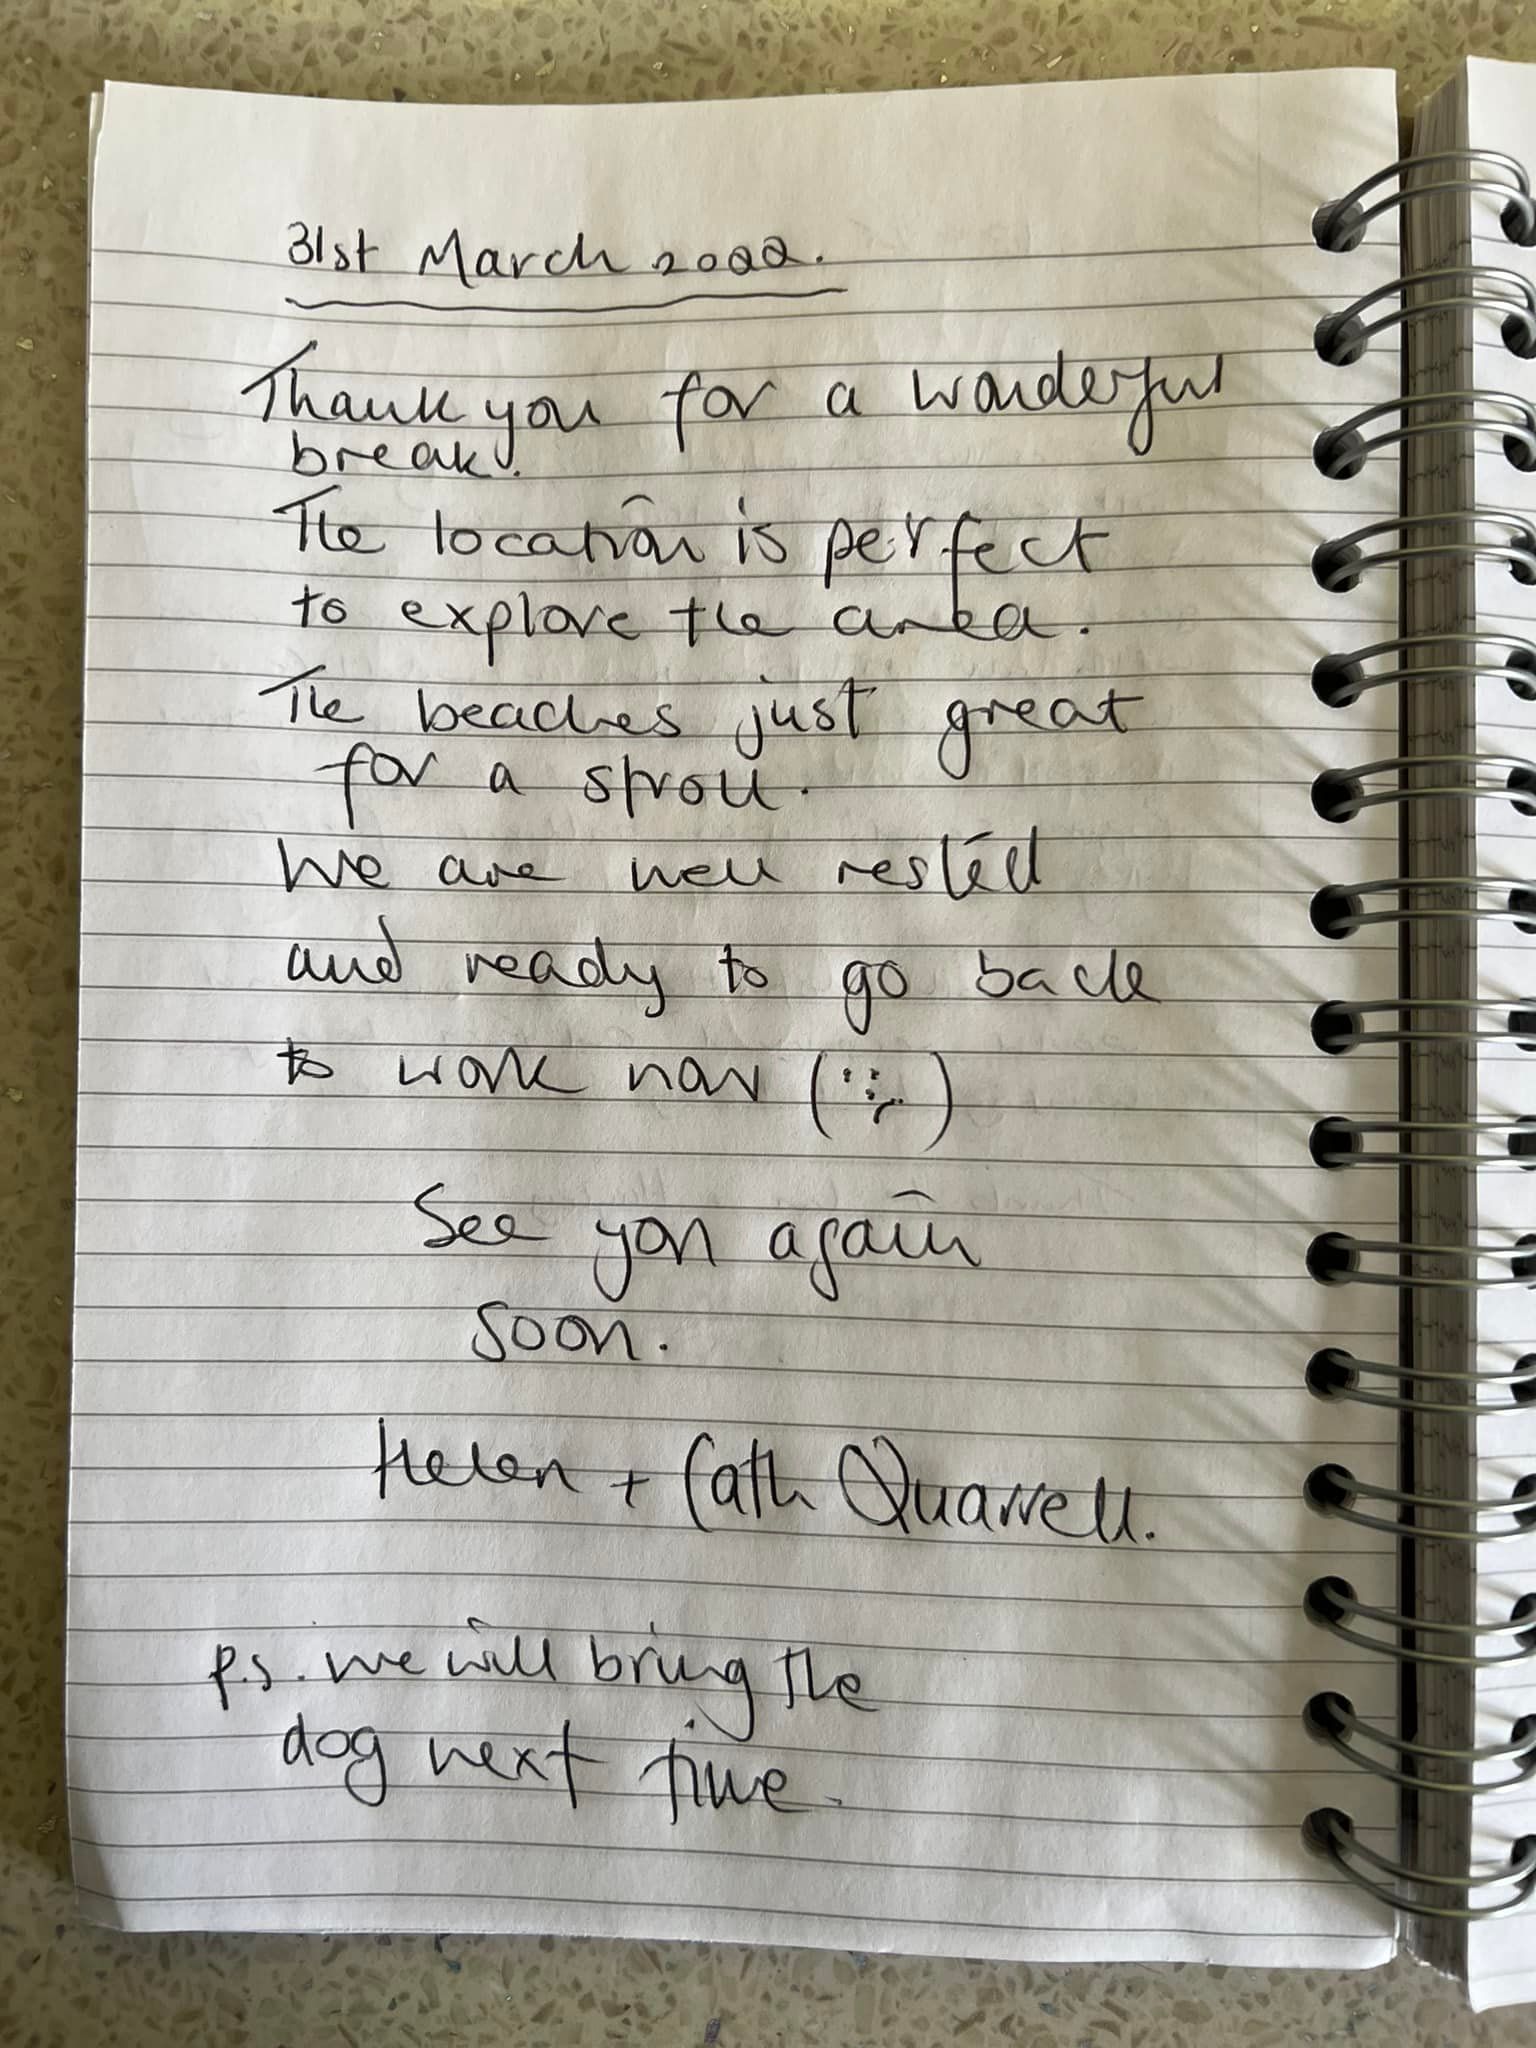 31st March 2022.
Thank you for a wonderful
break.
The location is perfect
to explore the area.
The beaches just great
for a stroll.
We are well rested
and ready to go back
to work now (:()
See you again
soon.
Helen + Cath Quarrell.
p.s. we will bring the
dog next time.